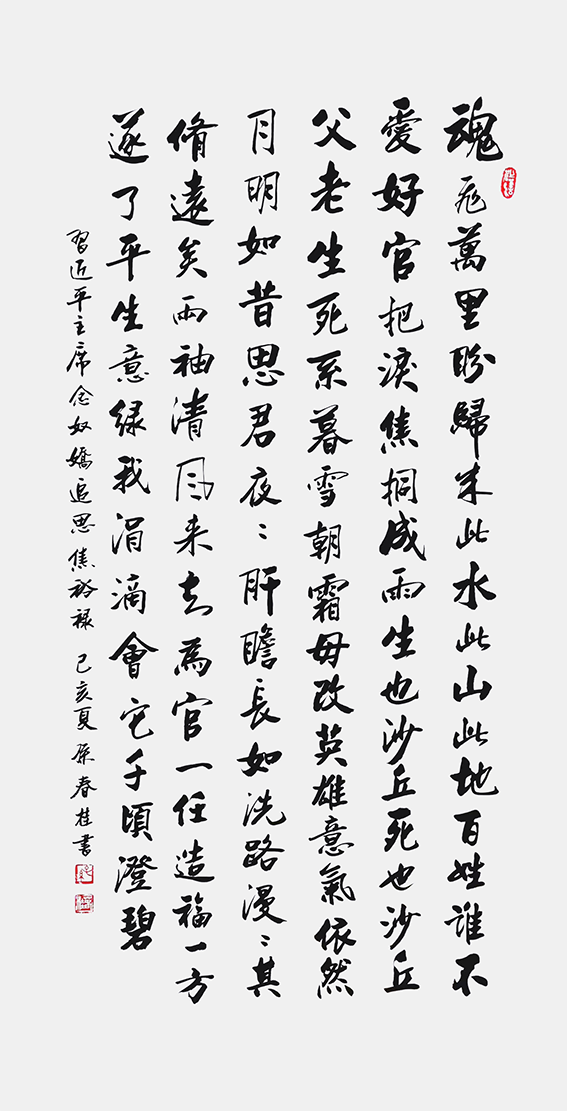 魂飛萬里盼歸来此水此山此地百姓誰不
愛好官把淚焦桐成雨生也沙丘死也沙丘
父老生死系暮雪朝霜毋改英雄意氣依然
月明如昔思君夜〻肝膽長如洗路漫〻其
脩遠矣兩袖清风来去為官一任造福一方
遂了平生意绿我涓滴會它千頃澄碧
習近平主席念奴嬌追思焦裕禄 己亥夏原春桂書